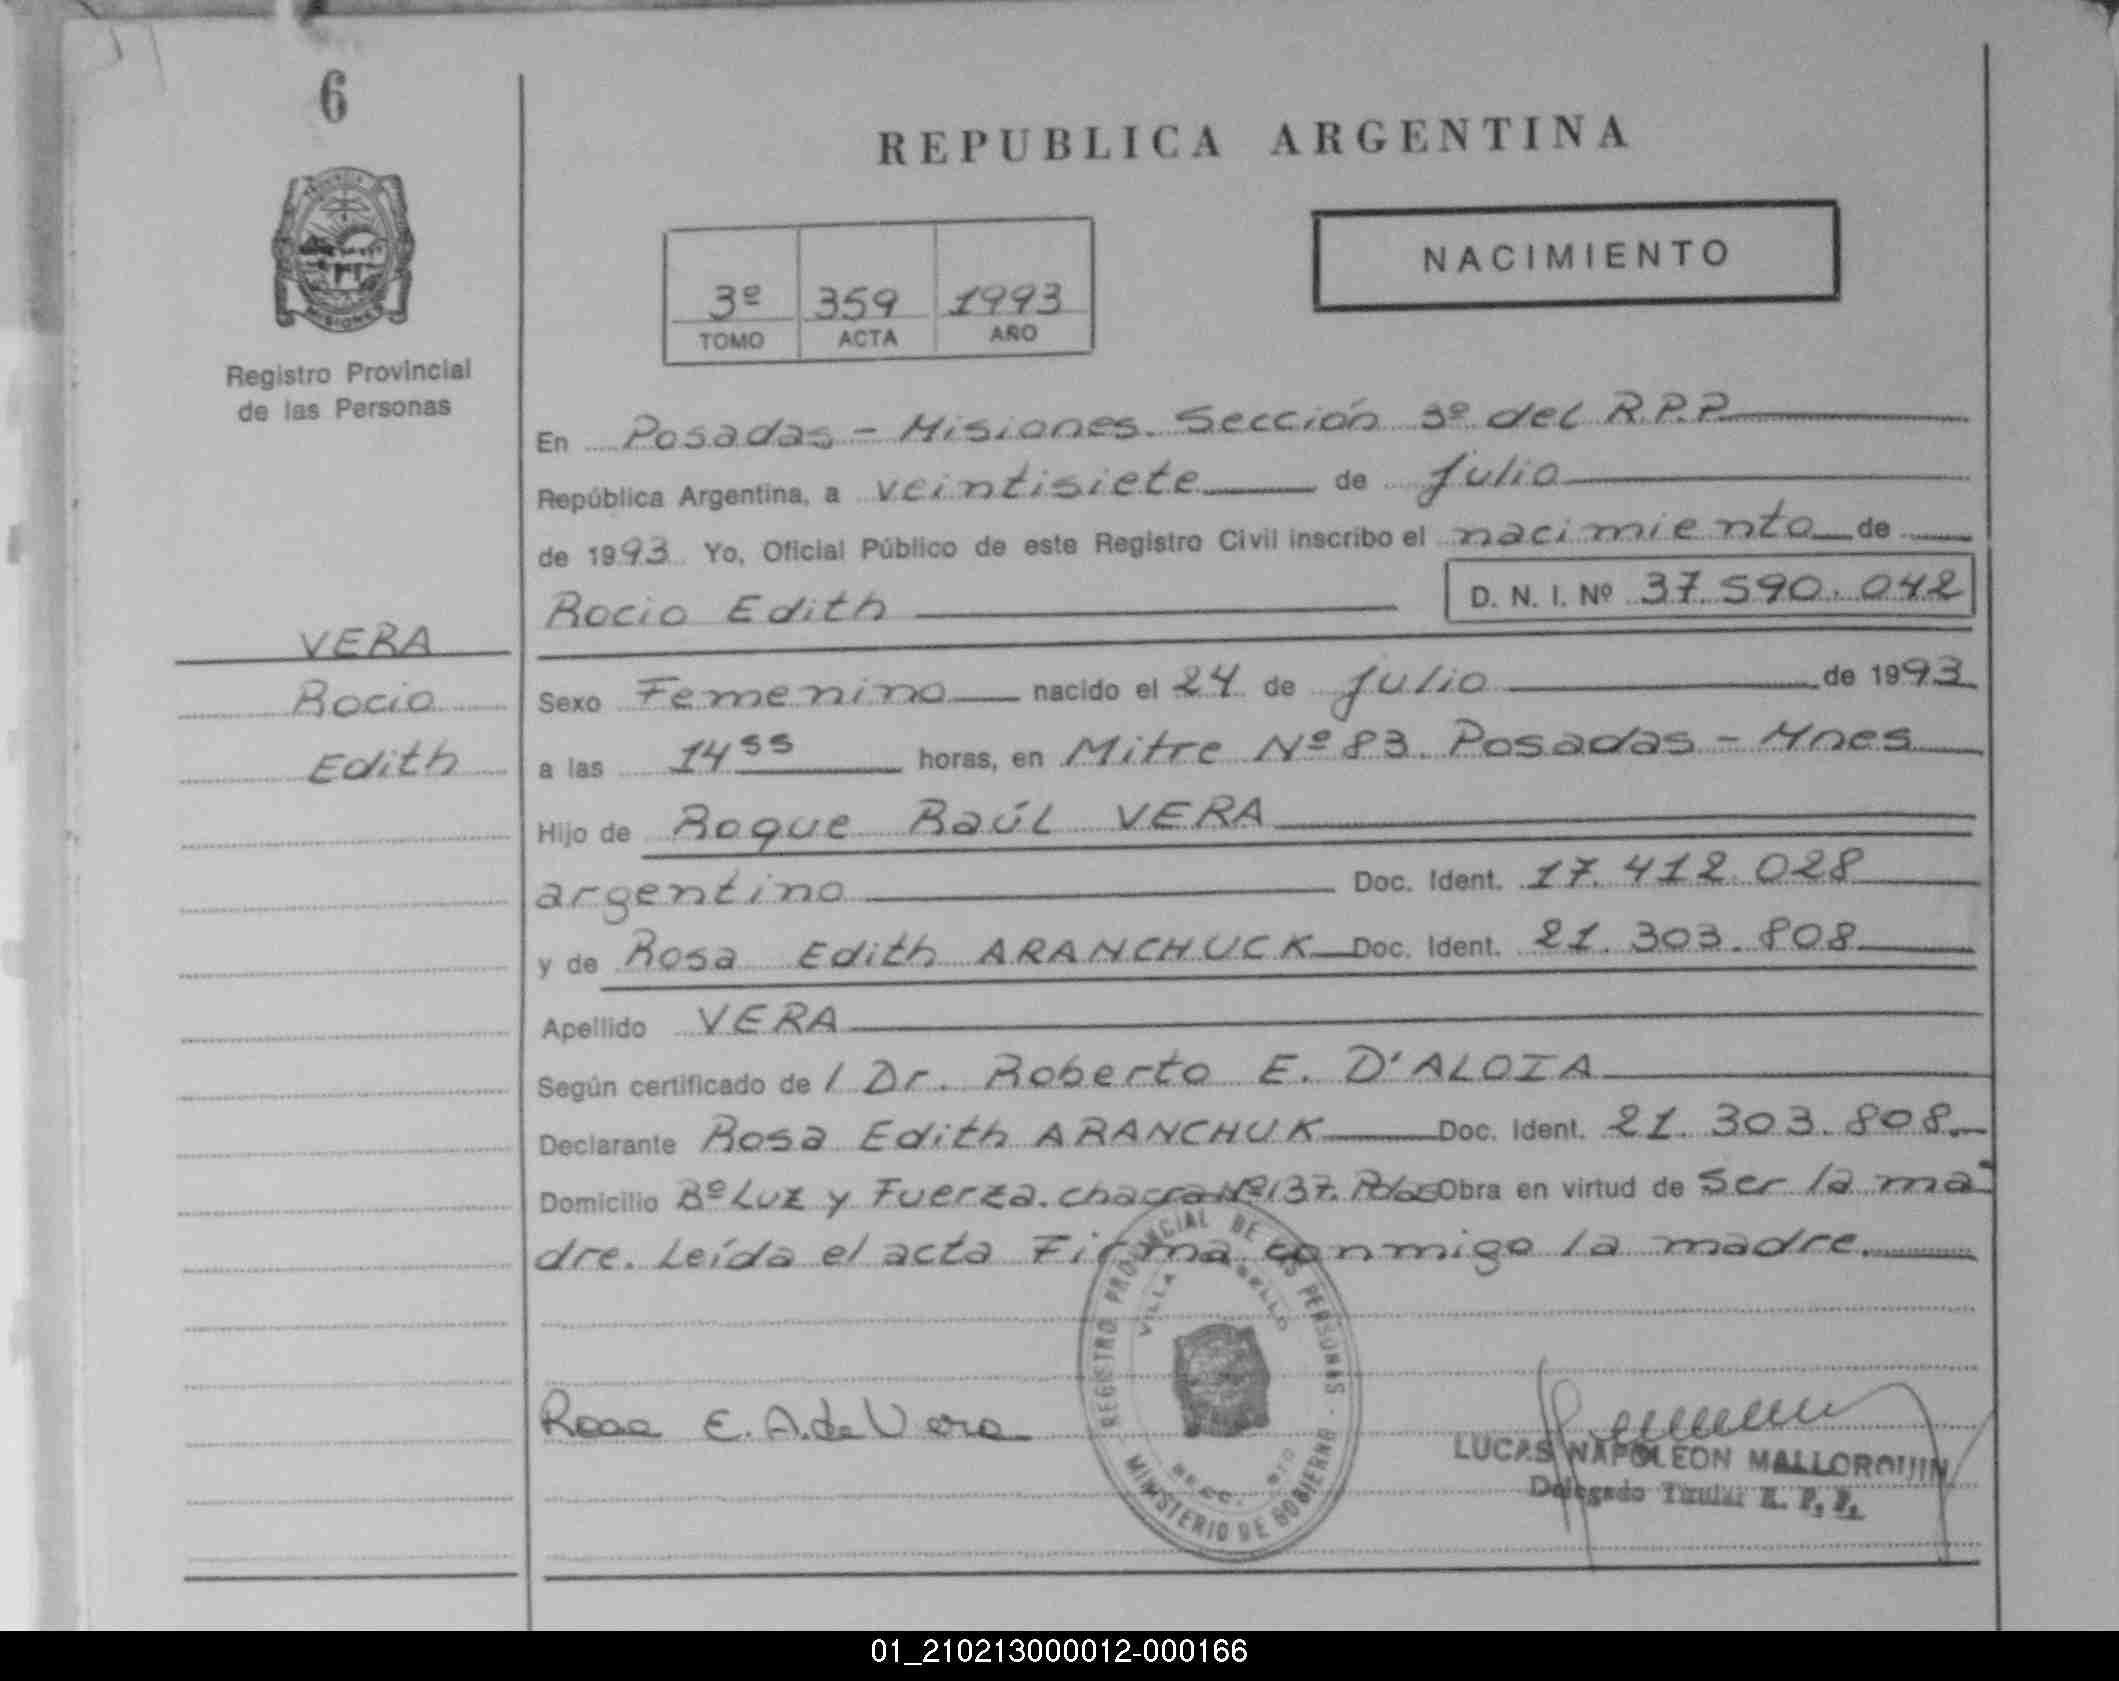 6
REPUBLICA ARGENTINA
NACIMIENTO
3º 359 1993
TOMO ACTA AÑO
PROVINCIA
MISIONES
Registro Provincial
de las Personas
En Posadas - Misiones. Sección 3º del R.P.P.
República Argentina, a veintisiete de julio
de 1993 Yo, Oficial Público de este Registro Civil inscribo el nacimiento de
Rocio Edith D. N. I. Nº 37.590.042
VERA
Rocio
Edith
Sexo Femenino nacido el 24 de julio de 1993
a las 14 55 horas, en Mitre Nº 83. Posadas - Mnes
Hijo de Roque Raúl VERA
argentino Doc. Ident. 17.412.028
y de Rosa Edith ARANCHUCK Doc. Ident. 21.303.808
Apellido VERA
Según certificado de l Dr. Roberto E. D'ALOIA
Declarante Rosa Edith ARANCHUK Doc. Ident. 21.303.808.
Domicilio Bº Luz y Fuerza. chacra Nº 137. Pdas Obra en virtud de ser la ma-
dre. Leída el acta Firma conmigo la madre.
REGISTRO PROVINCIAL DE LAS PERSONAS
VILLA
MINISTERIO DE GOBIERNO
Rosa E. A. de Vera
LUCAS NAPOLEON MALLORQUIN
Delegado Titular R. P. P.
01_210213000012-000166